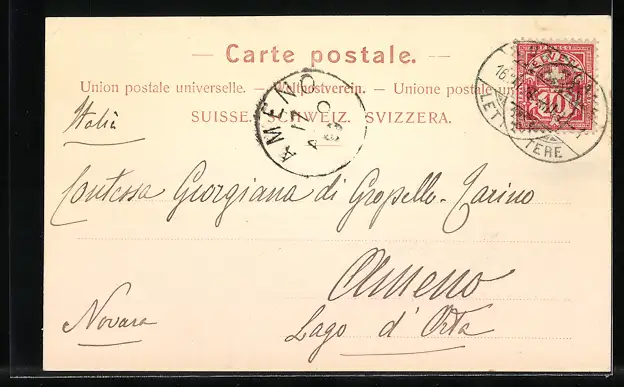 Carte postale.
Union postale universelle. — Weltpostverein. — Unione postale
SUISSE. SCHWEIZ. SVIZZERA.
AMENO
LETTERE
10
Italia
Contessa Georgiana di Gropello-Tarino
Ameno
Novara
Lago d'Orta